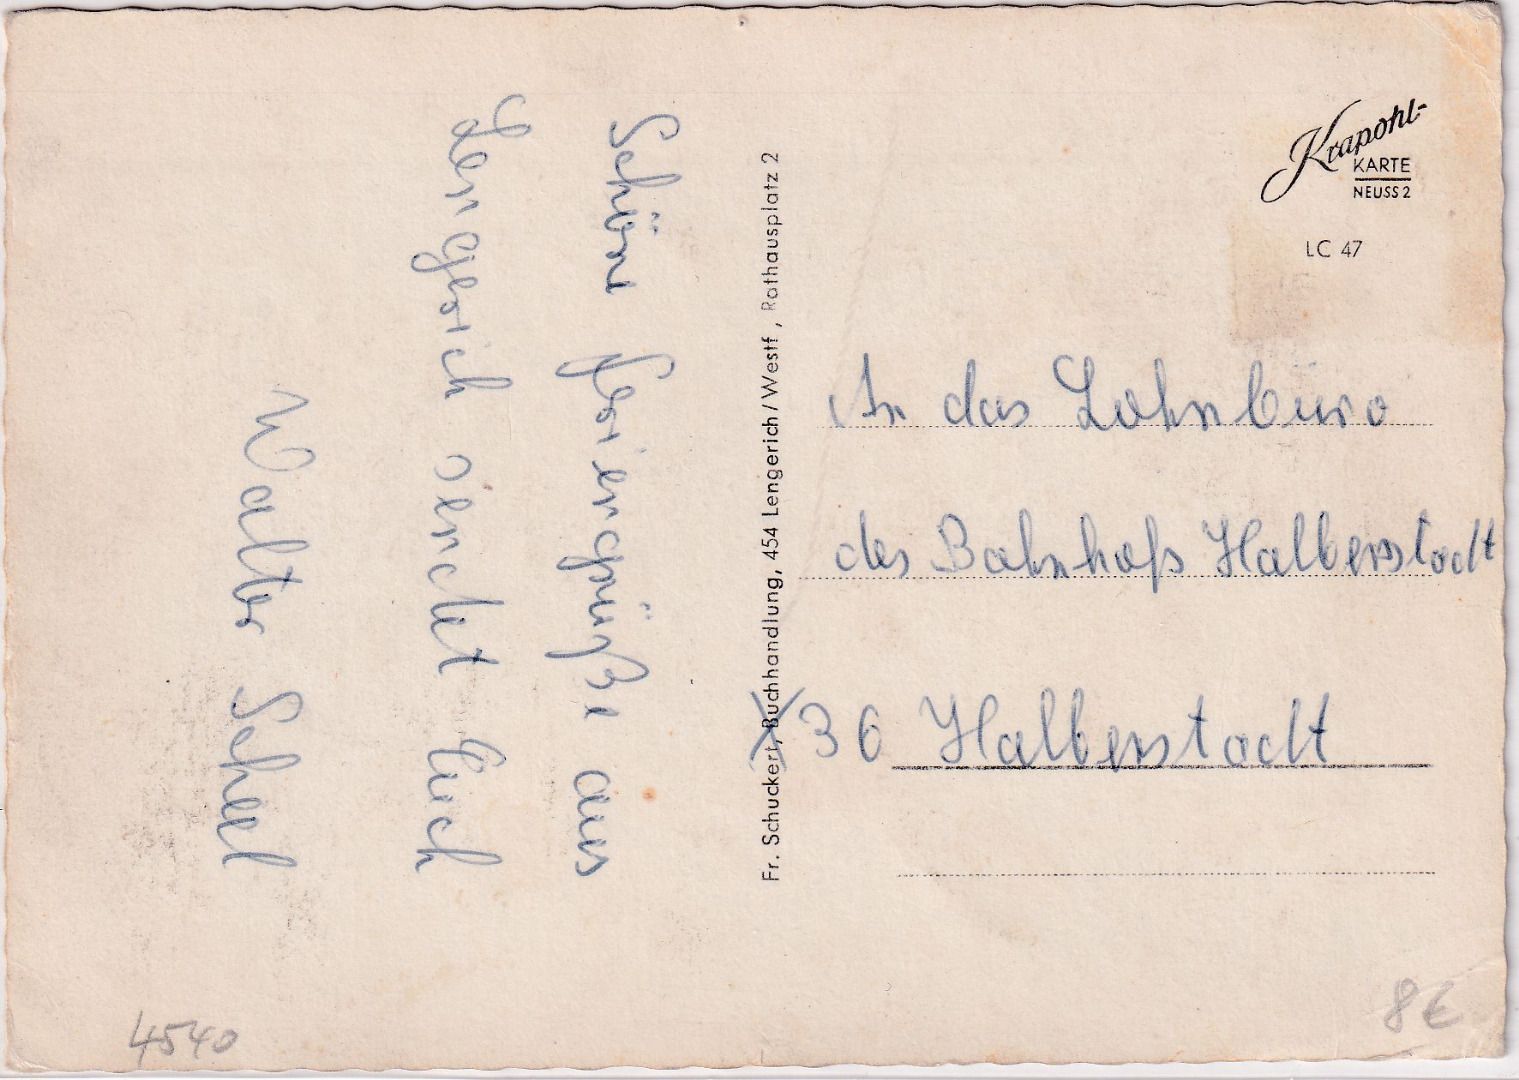 Schöne Feriengrüße aus
Lengerich sendet Euch
Walter Scheel
4540
Fr. Schuckert, Buchhandlung, 454 Lengerich/Westf, Rathausplatz 2
Krapohl-
KARTE
NEUSS 2
LC 47
An das Lohnbüro
des Bahnhofs Halberstadt
X 36 Halberstadt
8€